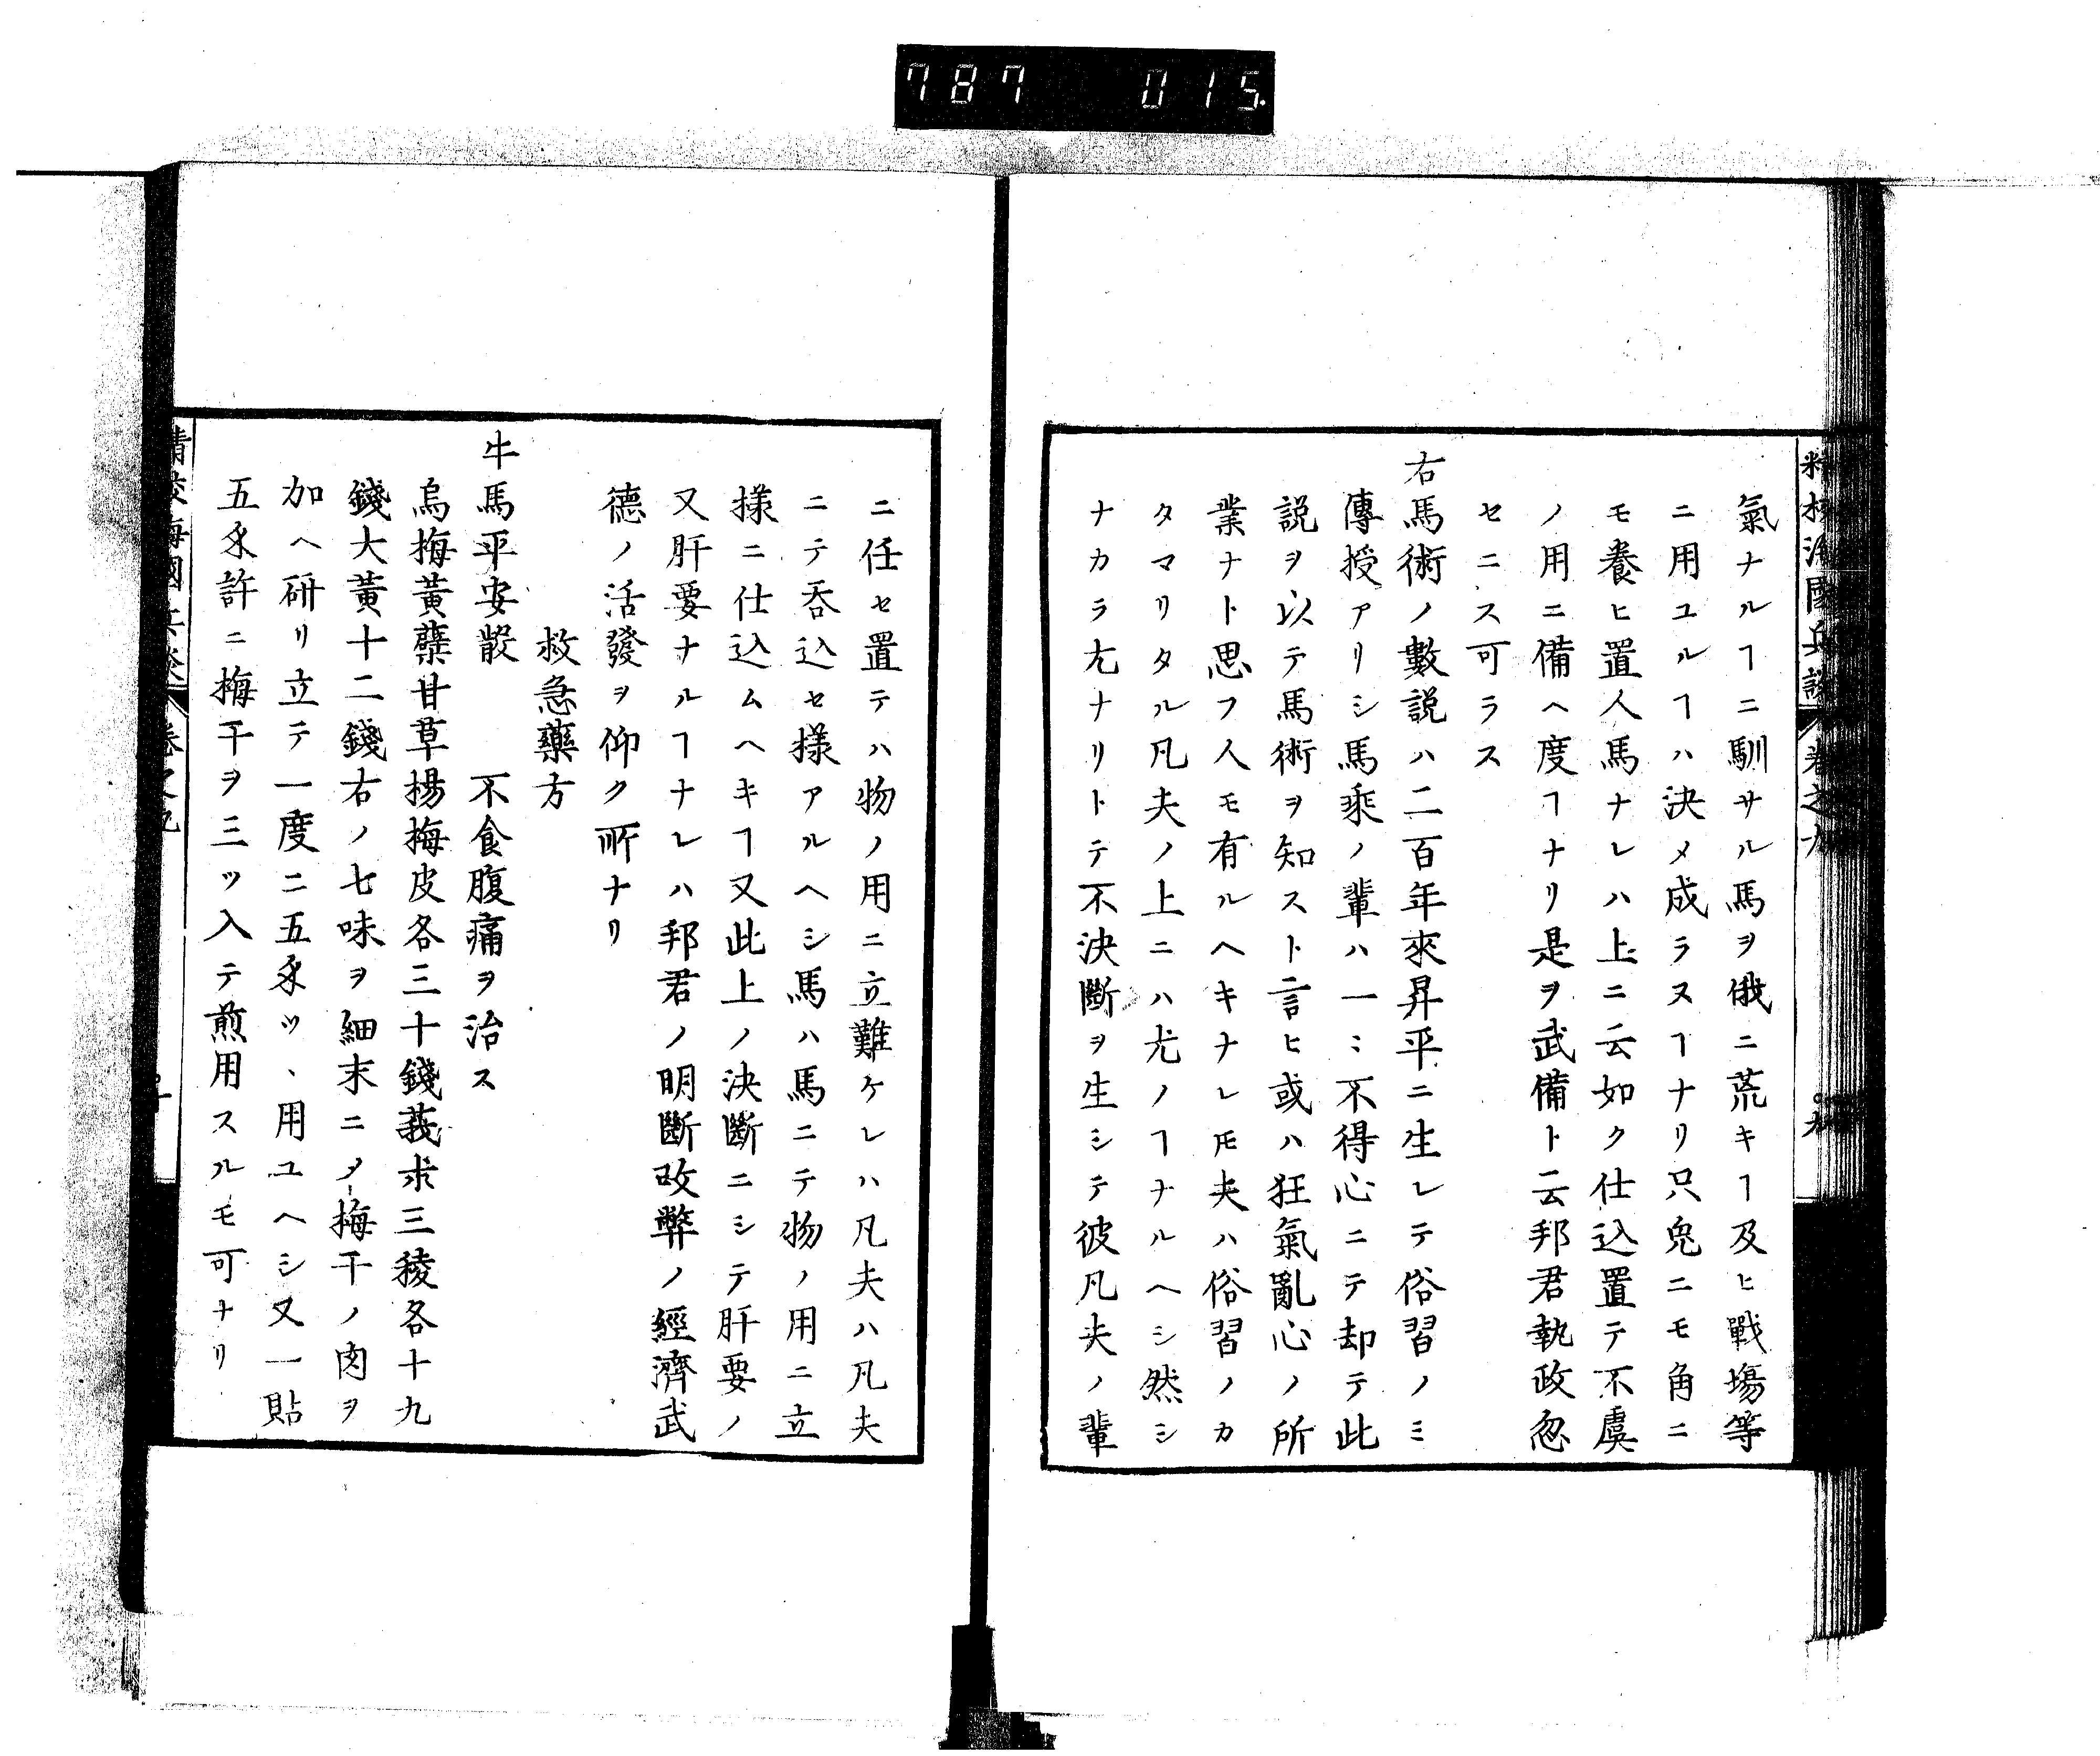 787 015
精校海國兵談 卷之九
氣ナルヿニ馴サル馬ヲ俄ニ荒キヿ及ヒ戰塲等
ニ用ユルヿハ決メ成ラヌヿナリ只兎ニモ角ニ
モ養ヒ置人馬ナレハ上ニ云如ク仕込置テ不虞
ノ用ニ備ヘ度ヿナリ是ヲ武備ト云邦君執政忽
セニス可ラス
右馬術ノ數説ハ二百年來昇平ニ生レテ俗習ノミ
傳授アリシ馬乘ノ輩ハ一〻不得心ニテ却テ此
説ヲ以テ馬術ヲ知スト言ヒ或ハ狂氣亂心ノ所
業ナト思フ人モ有ルヘキナレ𪜈夫ハ俗習ノカ
タマリタル凡夫ノ上ニハ尤ノヿナルヘシ然シ
ナカラ尤ナリトテ不決斷ヲ生シテ彼凡夫ノ輩
ニ任セ置テハ物ノ用ニ立難ケレハ凡夫ハ凡夫
ニテ呑込セ様アルヘシ馬ハ馬ニテ物ノ用ニ立
様ニ仕込ムヘキヿ又此上ノ決斷ニシテ肝要ノ
又肝要ナルヿナレハ邦君ノ明斷改弊ノ經濟武
德ノ活發ヲ仰ク所ナリ
救急藥方
牛馬平安散 不食腹痛ヲ治ス
烏梅黄蘗甘草楊梅皮各三十錢莪朮三稜各十九
錢大黄十二錢右ノ七味ヲ細末ニメ梅干ノ肉ヲ
加ヘ研リ立テ一度ニ五匁ツヽ用ユヘシ又一貼
五匁許ニ梅干ヲ三ツ入テ煎用スルモ可ナリ
精校海國兵談 卷之九